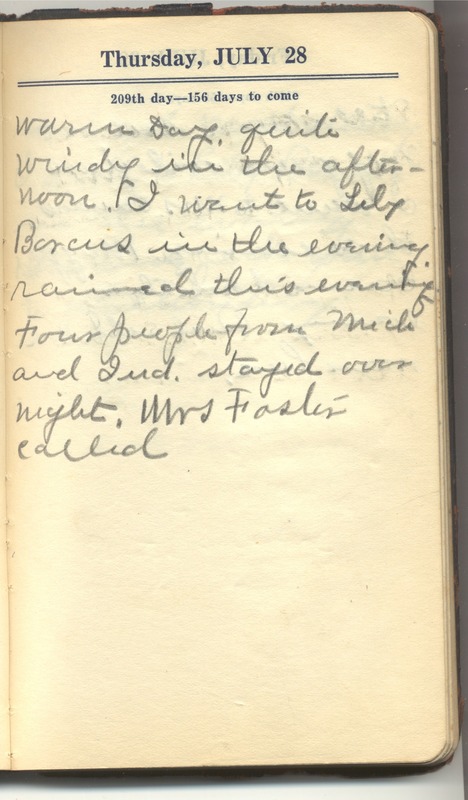 Thursday, JULY 28
209th day—156 days to come
warm Day. quite
windy in the after-
noon. I went to Lily
Borcus in the evening
rained this evening
Four people from Mich
and Ind. stayed over
night. Mrs Foster
called